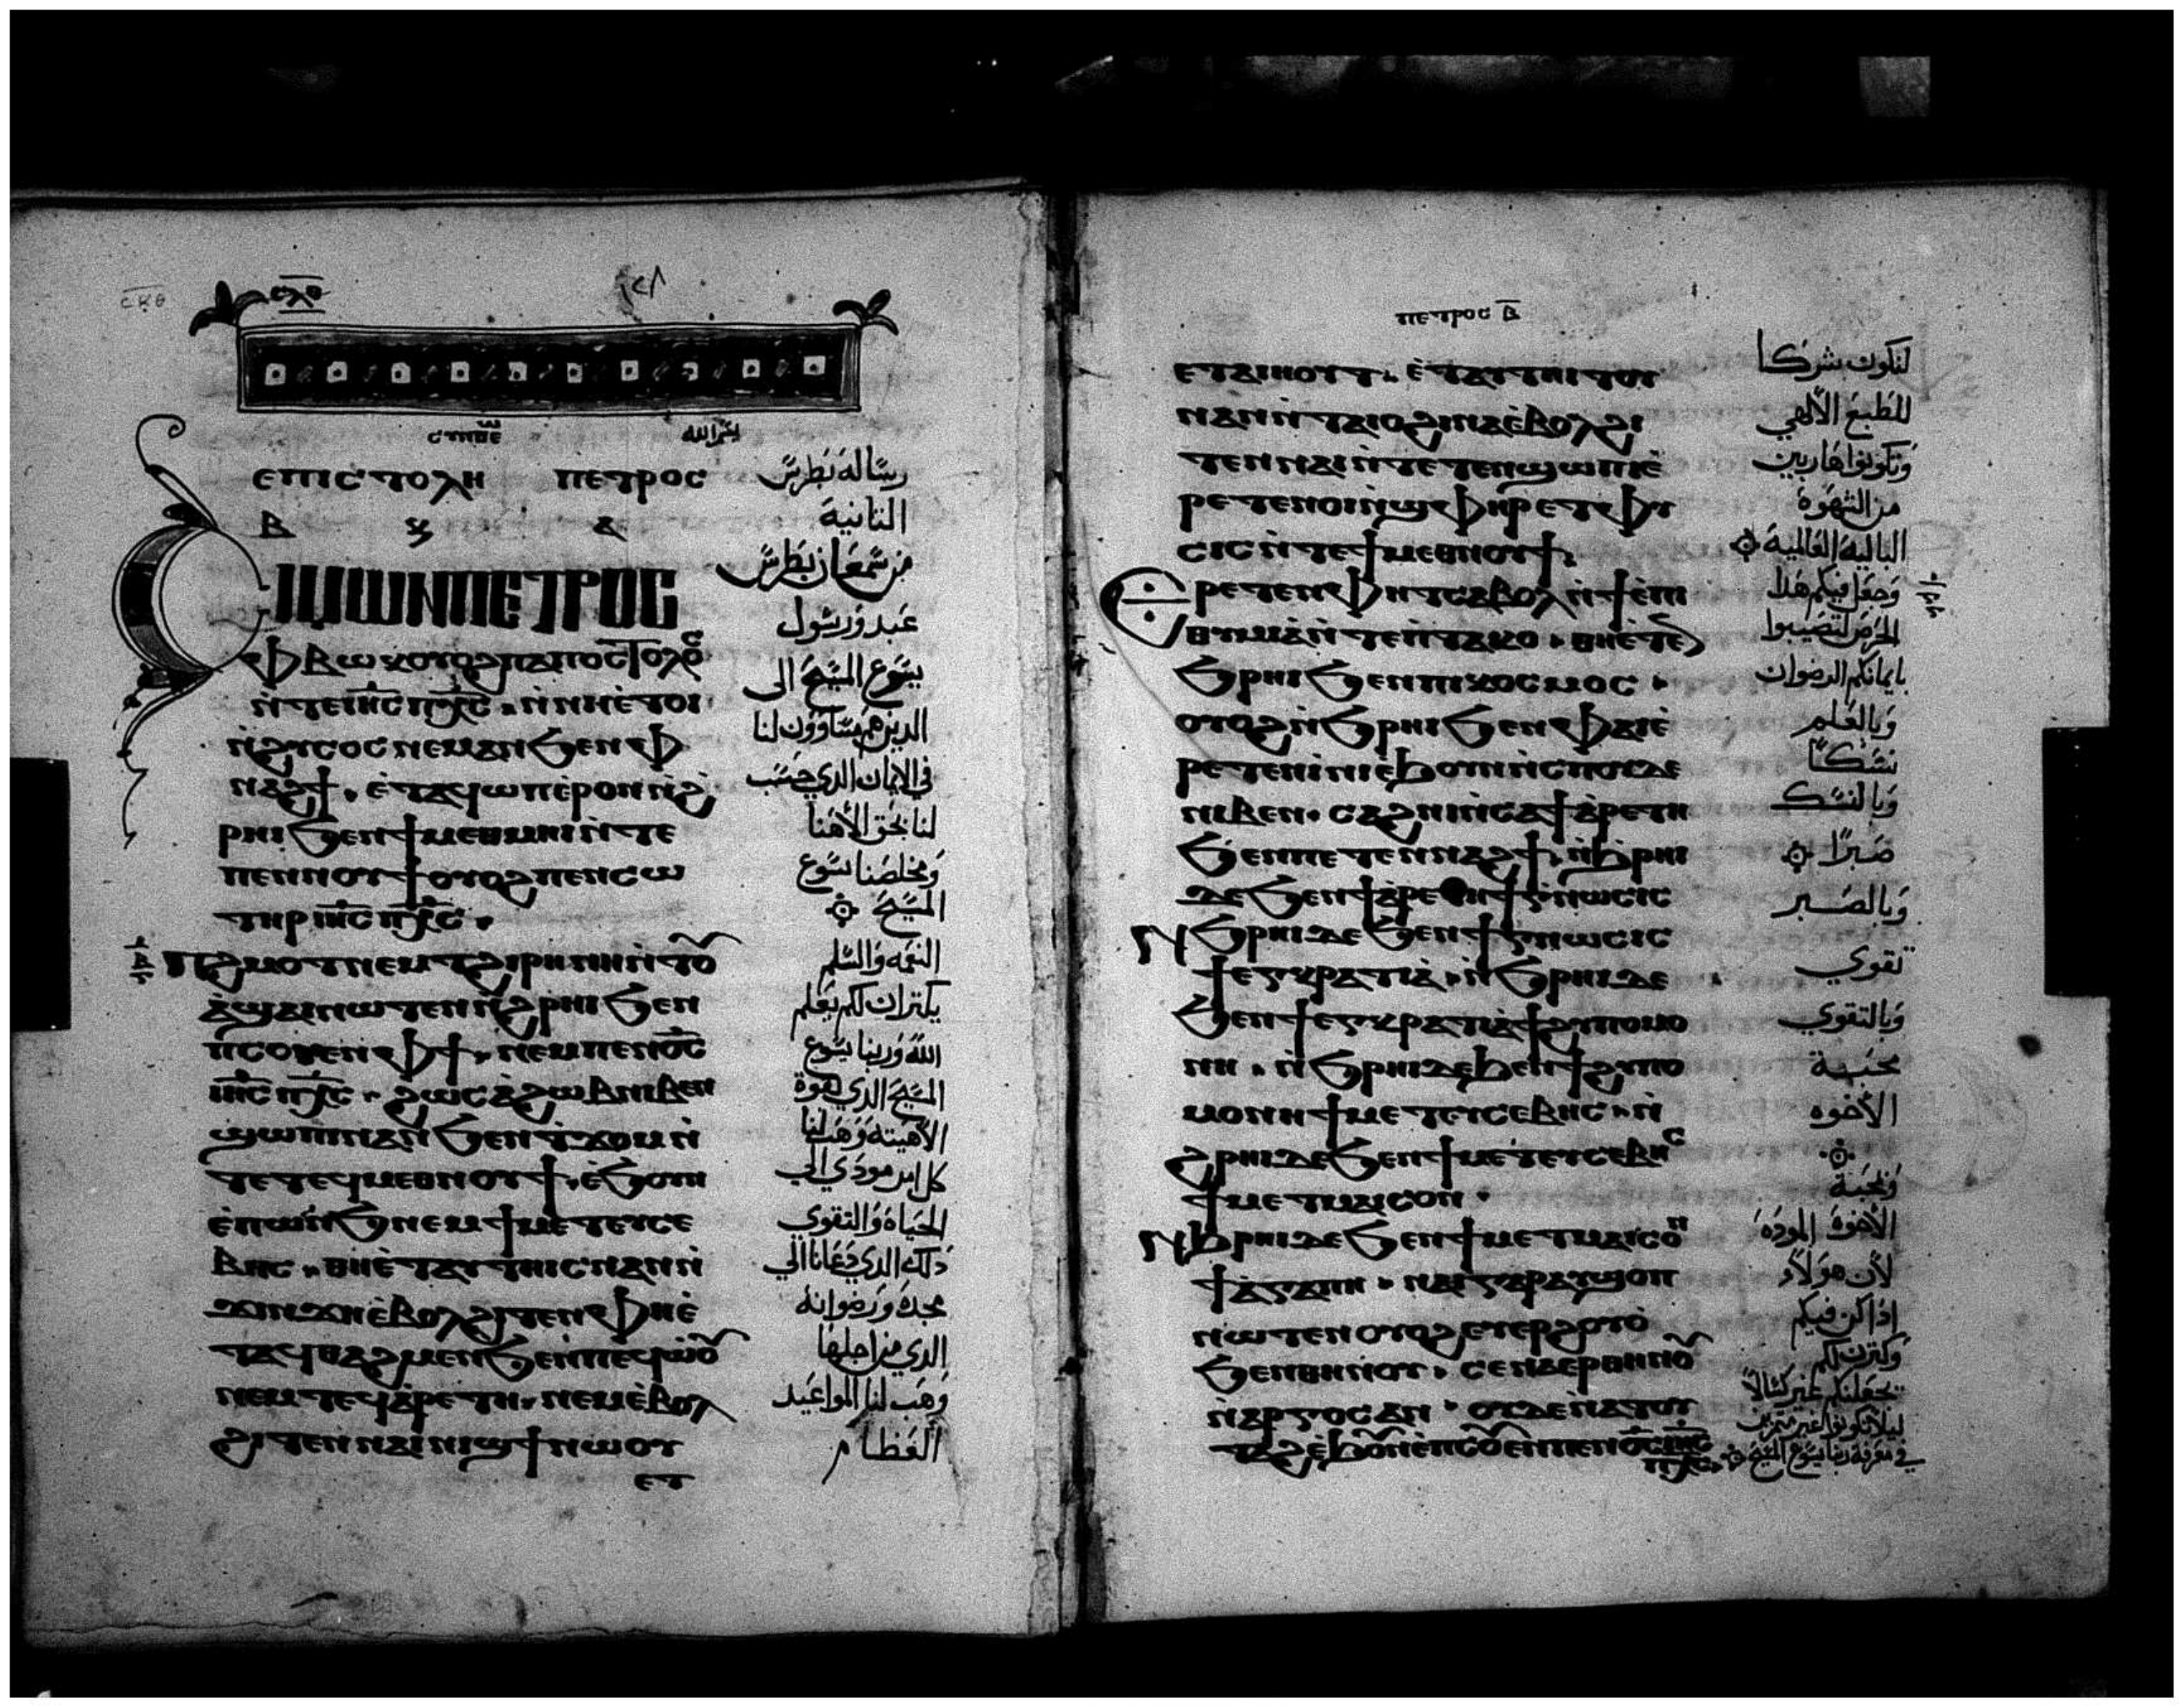 ⲥⲗⲑ
ⲉⲡⲓⲥⲧⲟⲗⲏ ⲡⲉⲧⲣⲟⲥ
ⲃ
ⲥⲓⲙⲱⲛⲡⲉⲧⲣⲟⲥ
ⲫⲃⲱⲕⲟⲩⲟϩⲡⲁⲡⲟⲥⲧⲟⲗⲟⲥ
ⲛ̀ⲧⲉⲓⲏ̅ⲥ̅ⲡⲭ̅ⲥ̅ ⲛ̀ⲛⲏⲉ̀ⲧⲟⲓ
ⲛ̀ϩⲩⲥⲟⲥⲛⲉⲙⲁⲛϧⲉⲛⲫ
ⲛⲁϩϯ. ⲉ̀ⲧⲁϥϣⲱⲡⲓⲉ̀ⲣⲟⲛⲛ̀ϩ̀
ⲣⲏⲓϧⲉⲛϯⲙⲉⲑⲙⲏⲓⲛ̀ⲧⲉ
ⲡⲉⲛⲛⲟⲩϯⲟⲩⲟϩⲡⲉⲛⲥⲱ
ⲧⲏⲣⲓⲏ̅ⲥ̅ⲡⲭ̅ⲥ̅.
ⲡϩⲙⲟⲧⲛⲉⲙⲧϩⲓⲣⲏⲛⲏⲛ̀ⲧⲟⲩ
ⲁ̀ϣⲁⲓⲛⲱⲧⲉⲛⲛ̀ϩⲣⲏⲓϧⲉⲛ
ⲡⲥⲟⲩⲉⲛⲫϯ. ⲛⲉⲙⲡⲉⲛⲟ̅ⲥ̅
ⲓⲏ̅ⲥ̅ⲡⲭ̅ⲥ̅. ϩⲱⲥⲁ̀ϩⲱⲃⲛⲓⲃⲉⲛ
ϣⲱⲡⲓⲛⲁⲛϧⲉⲛϯϫⲟⲙⲛ̀
ⲧⲉⲧⲉϥⲙⲉⲑⲛⲟⲩϯ. ⲉ̀ϧⲟⲩⲛ
ⲉ̀ⲡⲱⲛϧⲛⲉⲙϯⲙⲉⲧⲉⲩⲥⲉ
ⲃⲏⲥ. ⲑⲏⲉ̀ⲧⲁⲩⲧⲏⲓⲥⲛⲁⲛⲛ̀
ϫⲓⲛϫⲏⲉ̀ⲃⲟⲗϩⲓⲧⲉⲛⲫⲏⲉ̀
ⲧⲁϥⲑⲁϩⲙⲉⲛϧⲉⲛⲡⲉϥⲱ̀ⲟⲩ
ⲛⲉⲙⲧⲉϥⲁ̀ⲣⲉⲧⲏ. ⲛⲉⲙⲉ̀ⲃⲟⲗ
ϩⲓⲧⲉⲛⲛⲁⲓⲛⲓϣϯⲛⲱⲟⲩ
ⲉⲧ
بسم الله
رسالة بطرس
الثانية
من سمعان بطرس
عبد ورسول
يسوع المسيح الى
الدين هم متساوون لنا
في الايمان الدي حسب
لنا بحق الاهنا
ومخلصنا يسوع
المسيح
النعمه والسلم
يكثران لكم بعلم
الله وربنا يسوع
المسيح الدي بقوة
الاهيته وهب لنا
كل امر مودي الى
الحياة والتقوي
ذلك الدي دعانا الي
مجده ورضوانه
الدي من اجلها
وهب لنا المواعيد
العظام
ⲡⲉⲧⲣⲟⲥ ⲃ̅
ⲉⲧⲁⲓⲏⲟⲩⲧ. ⲉ̀ⲧⲁⲩⲧⲏⲓⲧⲟⲩ
ⲛⲁⲛⲛ̀ⲧⲁⲓⲟϩⲓⲛⲁⲉ̀ⲃⲟⲗϩⲓ
ⲧⲉⲛⲛⲁⲓⲛ̀ⲧⲉⲧⲉⲛϣⲱⲡⲓⲉ̀
ⲣⲉⲧⲉⲛⲟⲓⲛ̀ϣⲫⲏⲣⲉⲧⲫⲩ
ⲥⲓⲥⲛ̀ⲧⲉϯⲙⲉⲑⲛⲟⲩϯ.
ⲉⲣⲉⲧⲉⲛⲫⲏⲧⲥⲁⲃⲟⲗⲛ̀ϯⲉ̀ⲡⲓ
ⲑⲩⲙⲓⲁ̀ⲛ̀ⲧⲉⲡⲧⲁⲕⲟ. ⲑⲏⲉ̀ⲧⲉ
ϧⲣⲏⲓϧⲉⲛⲡⲓⲕⲟⲥⲙⲟⲥ.
ⲟⲩⲟϩⲛ̀ϧⲣⲏⲓϧⲉⲛⲫⲁⲓⲉ̀
ⲣⲉⲧⲉⲛⲓⲛⲓⲉ̀ϧⲟⲩⲛⲛ̀ⲥⲡⲟⲩⲇⲏ
ⲛⲓⲃⲉⲛ. ⲥⲁϩⲛⲓⲛ̀ⲥⲁϯⲁ̀ⲣⲉⲧⲏ
ϧⲉⲛⲡⲉⲧⲉⲛⲛⲁϩϯ. ⲛ̀ϧⲣⲏⲓ
ⲇⲉϧⲉⲛϯⲁ̀ⲣⲉⲧⲏϯⲅⲛⲱⲥⲓⲥ
ⲛϧⲣⲏⲓⲇⲉϧⲉⲛϯⲅⲛⲱⲥⲓⲥ
ϯⲉⲅⲕⲣⲁⲧⲓⲁ̀. ⲛ̀ϧⲣⲏⲓⲇⲉ
ϧⲉⲛϯⲉⲅⲕⲣⲁⲧⲓⲁ̀ϯϩⲩⲡⲟⲙⲟ
ⲛⲏ. ⲛ̀ϧⲣⲏⲓⲇⲉϧⲉⲛϯϩⲩⲡⲟ
ⲙⲟⲛⲏϯⲙⲉⲧⲉⲩⲥⲉⲃⲏⲥ. ⲛ̀
ϩⲣⲏⲓⲇⲉϧⲉⲛϯⲙⲉⲧⲉⲩⲥⲉⲃⲏⲥ
ϯⲙⲉⲧⲙⲁⲓⲥⲟⲛ.
ⲛϧⲣⲏⲓⲇⲉϧⲉⲛϯⲙⲉⲧⲙⲁⲓⲥⲟⲛ
ϯⲁ̀ⲅⲁⲡⲏ. ⲛⲁⲓⲅⲁⲣⲁⲩϣⲟⲡ
ⲛⲱⲧⲉⲛⲟⲩⲟϩⲉⲩⲉⲣϩⲟⲩⲟ̀
ϧⲉⲛⲑⲏⲛⲟⲩ. ⲥⲉⲛⲁⲉⲣⲑⲏⲛⲟⲩ
ⲛ̀ⲁⲣⲅⲟⲥⲁⲛ. ⲟⲩⲇⲉⲛ̀ⲁⲧⲟⲩ
ⲧⲁϩⲉ̀ϧⲟⲩⲛⲉ̀ⲡⲥⲟⲩⲉⲛⲡⲉⲛⲟ̅ⲥ̅ⲓⲏ̅ⲥ̅
ⲡⲭ̅ⲥ̅
لتكون شركا
للطبع الالهي
وتكونوا هاربين
من الشهوة
البالية العالمية
بايمانكم الرضوان
وبالعلم
نسكا
وبالنسك
صبرا
وبالصبر
تقوي
وبالتقوي
محبة
الاخوه
وبمحبة
الاخوة المودة
لان هولاء
اذا كن فيكم
وكثرن لكم
في معرفة ربنا يسوع المسيح